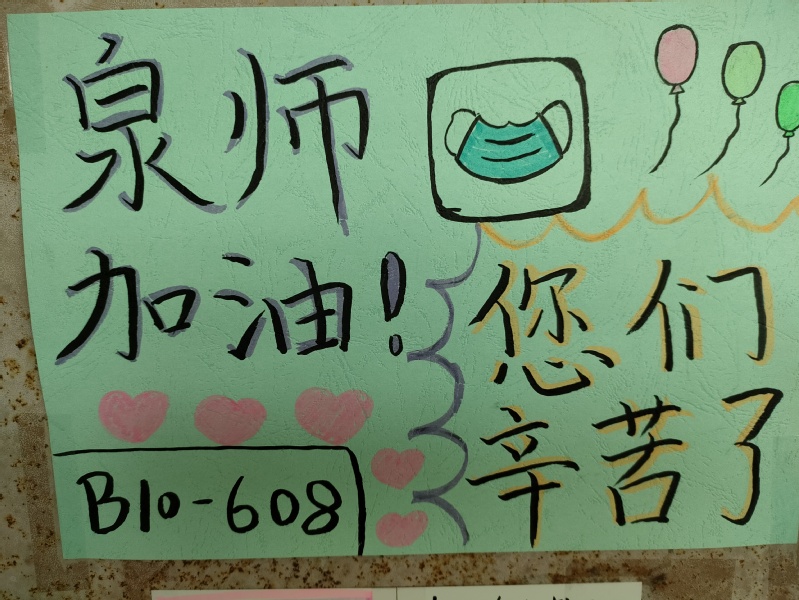 泉师
加油！
您们
辛苦了
B10-608